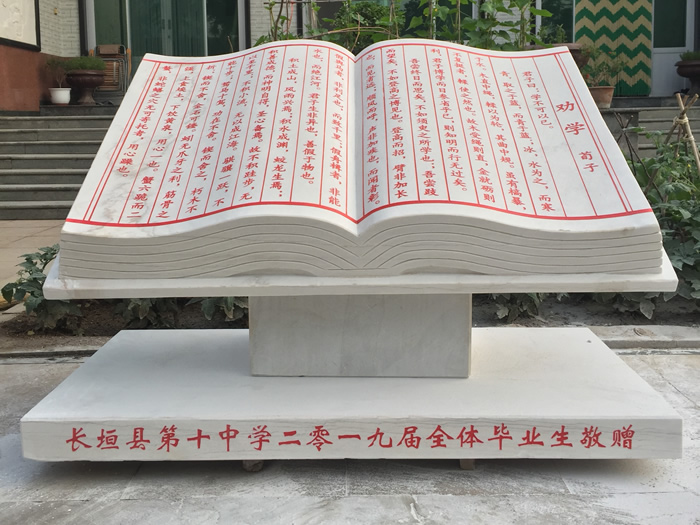 劝学 荀子
君子曰:学不可以已。
青,取之于蓝,而青于蓝;冰,水为之,而寒
于水。木直中绳,輮以为轮,其曲中规。虽有槁暴,
不复挺者,輮使之然也。故木受绳则直,金就砺则
利,君子博学而日参省乎己,则知明而行无过矣。
吾尝终日而思矣,不如须臾之所学也;吾尝跂
而望矣,不如登高之博见也。登高而招,臂非加长
也,而见者远;顺风而呼,声非加疾也,而闻者彰。
假舆马者,非利足也,而致千里;假舟楫者,非能
水也,而绝江河。君子生非异也,善假于物也。
积土成山,风雨兴焉;积水成渊,蛟龙生焉;
积善成德,而神明自得,圣心备焉。故不积跬步,无
以至千里;不积小流,无以成江海。骐骥一跃,不
能十步;驽马十驾,功在不舍。锲而舍之,朽木不
折;锲而不舍,金石可镂。蚓无爪牙之利,筋骨之
强,上食埃土,下饮黄泉,用心一也。蟹六跪而二
螯,非蛇鳝之穴无可寄托者,用心躁也。
长垣县第十中学二零一九届全体毕业生敬赠